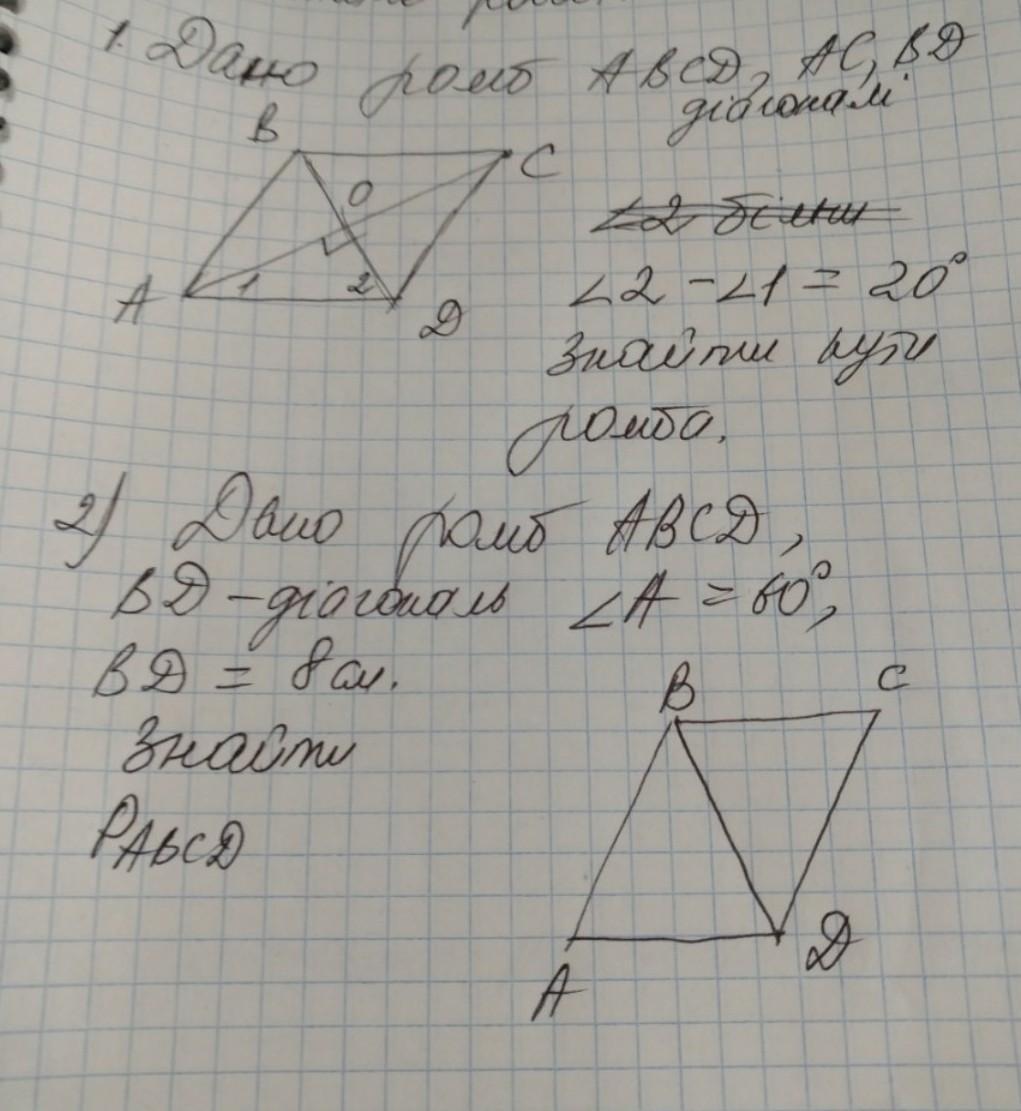 1. Дано ромб ABCD, AC, BD
діагоналі
B
C
O
∠2 - ∠1 = 20°
A
1
2
D
Знайти кути
ромба.
2) Дано ромб ABCD,
BD - діагональ ∠A = 60°,
BD = 8 см.
B
C
Знайти
PABCD
D
A